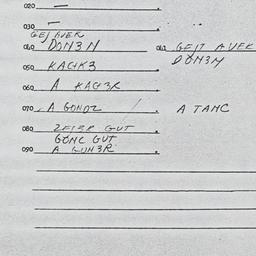 020 —
030 —
GEJ AVER
040 DON3N 041 GEIT AVER
DON3N
050 KACIK3
060 A KACI3R
070 A GONOZ / A TANC
080 2FIER GUT
GONC GUT
090 A GUN3R